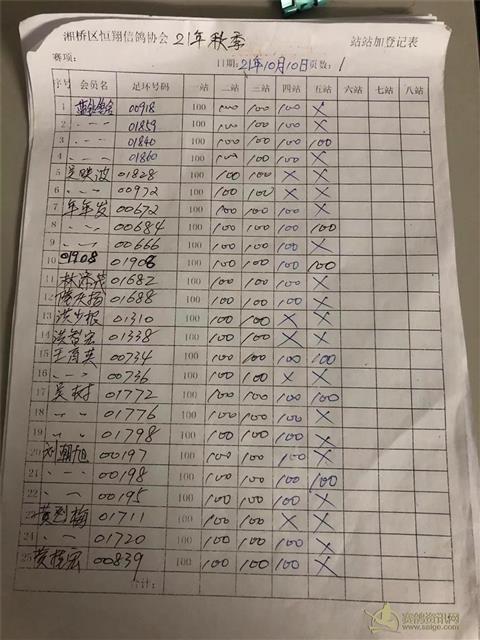 湘桥区恒翔信鸽协会 21年秋季 站站加登记表
赛项: 日期: 21年10月10日 页数: 1
序号 会员名 足环号码 一站 二站 三站 四站 五站 六站 七站 八站
1 00918 100 100 100 100 X
2 〃 01859 100 100 100 100 X
3 〃 01840 100 100 100 100 100
4 〃 01860 100 100 100 100 X
5 吴映波 01828 100 100 100 X X
6 〃 00972 100 100 100 X X
7 年年发 00672 100 100 100 100 X
8 〃 00684 100 100 100 100 100
9 〃 00666 100 100 100 100 X
10 01908 01908 100 100 100 100 100
11 林泽茂 01682 100 100 100 100 X
12 01688 100 100 100 100 X
13 洪少根 01310 100 100 100 X X
14 洪智宏 01338 100 100 100 X X
15 王育英 00734 100 100 100 100 100
16 〃 00736 100 100 100 X X
17 吴村 01772 100 100 100 100 100
18 〃 01776 100 100 100 100 X
19 〃 01798 100 100 100 100 X
20 刘朝旭 00197 100 100 100 100 X
21 〃 00198 100 100 100 100 100
22 〃 00195 100 100 100 100 X
23 01711 100 100 100 X X
24 〃 01720 100 100 100 100 X
25 00839 100 100 100 100 X
合计:
赛鸽资讯网
www.saige.com